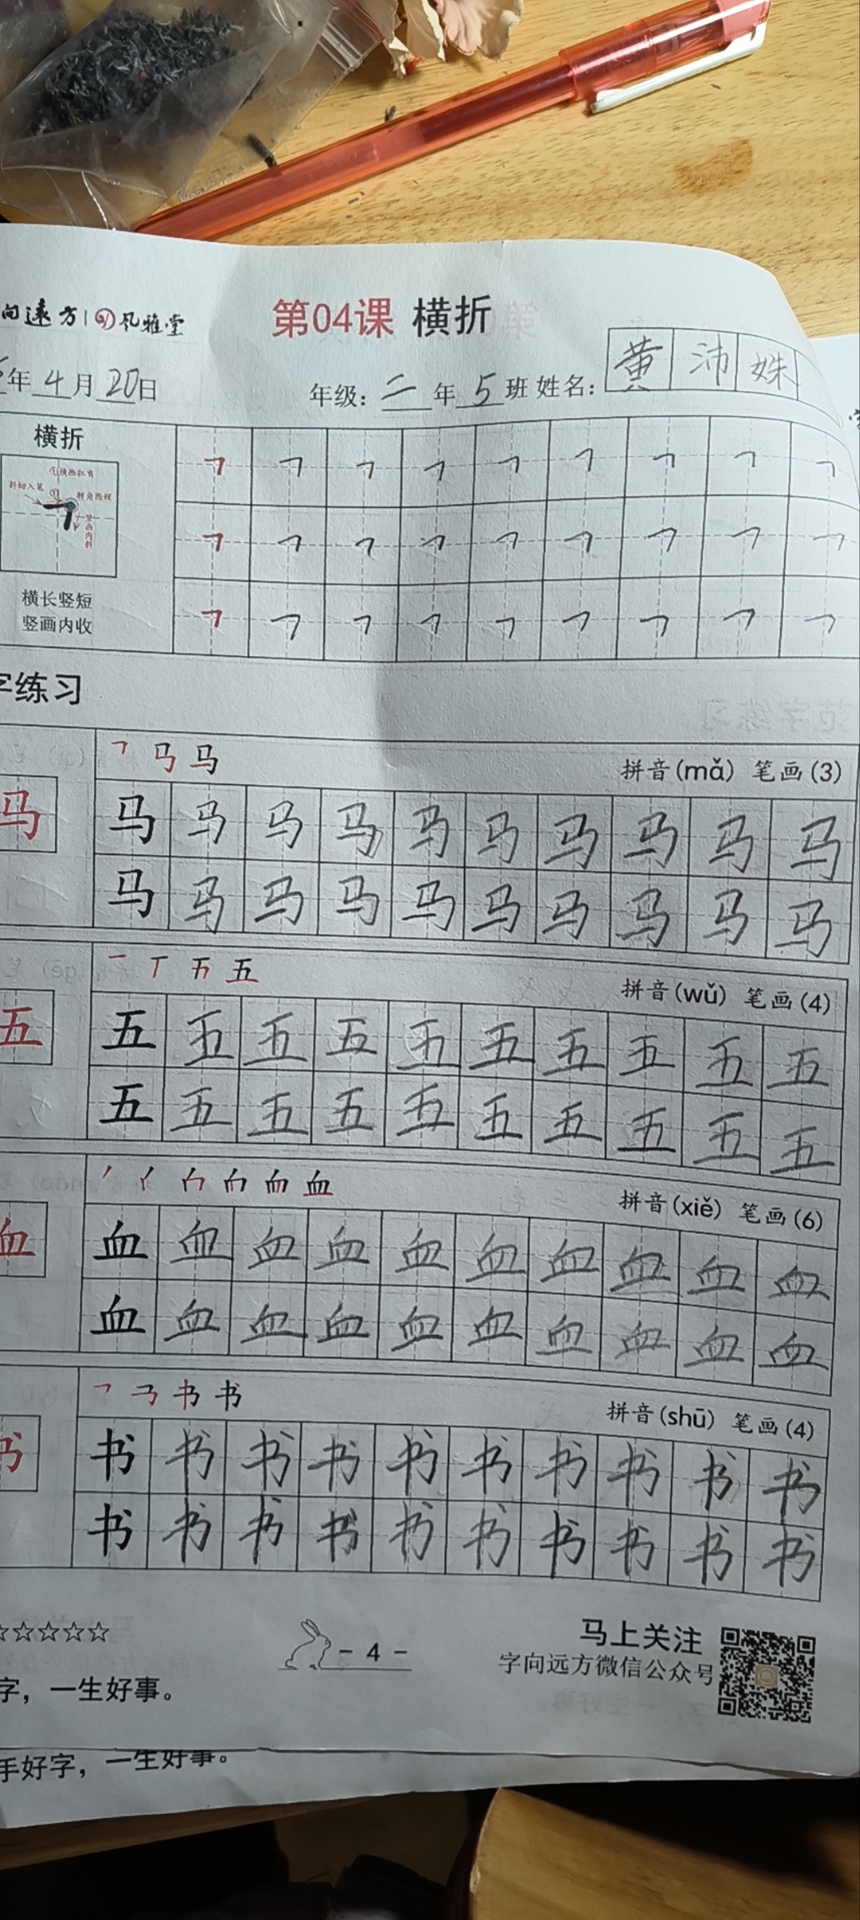 向遠方 风雅堂
第04课 横折
年4月20日
年级：二年5班 姓名：黄沛姝
横折
横长竖短
竖画内收
字练习
㇕ 马 马
拼音(mǎ) 笔画(3)
马 马 马 马 马 马 马 马 马 马 马
马 马 马 马 马 马 马 马 马 马
一 丆 五 五
拼音(wǔ) 笔画(4)
五 五 五 五 五 五 五 五 五 五 五
五 五 五 五 五 五 五 五 五 五
血
拼音(xiě) 笔画(6)
血 血 血 血 血 血 血 血 血 血 血
血 血 血 血 血 血 血 血 血 血
书 书
拼音(shū) 笔画(4)
书 书 书 书 书 书 书 书 书 书 书
书 书 书 书 书 书 书 书 书 书
☆☆☆☆☆
- 4 -
马上关注
字向远方微信公众号
字，一生好事。
手好字，一生好事。